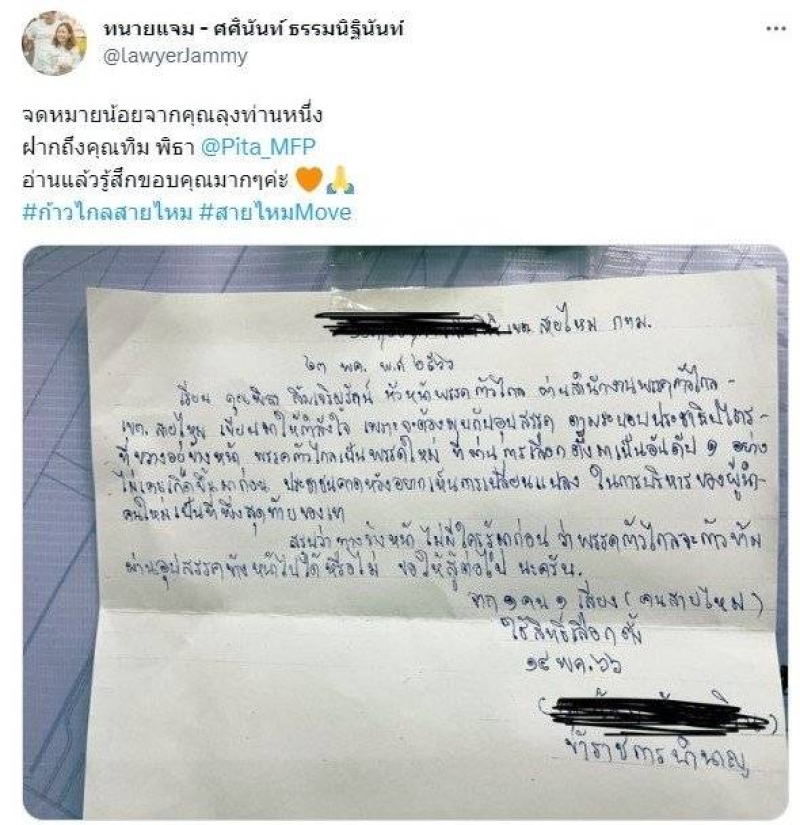 ทนายแจม - ศศินันท์ ธรรมนิฐินันท์
@lawyerJammy
จดหมายน้อยจากคุณลุงท่านหนึ่ง
ฝากถึงคุณทิม พิธา @Pita_MFP
อ่านแล้วรู้สึกขอบคุณมากๆค่ะ 🧡🙏
#ก้าวไกลสายไหม #สายไหมMove
เขต สายไหม กทม.
๒๓ พค. พ.ศ ๒๕๖๖
เรียน คุณพิธา ลิ้มเจริญรัตน์ หัวหน้าพรรคก้าวไกล ผ่านสำนักงานพรรคก้าวไกล-
เขต. สายไหม เขียนมาให้กำลังใจ เพราะจะต้องพบกับอุปสรรค ตามระบอบประชาธิปไตย-
ที่ขวางอยู่ข้างหน้า พรรคก้าวไกลเป็นพรรคใหม่ ที่ผ่านการเลือกตั้งมาเป็นอันดับ ๑ อย่าง
ไม่เคยเกิดขึ้นมาก่อน ประชาชนคาดหวังอยากเห็นการเปลี่ยนแปลง ในการบริหารของผู้นำ-
คนใหม่เป็นที่พึ่งสุดท้ายของเขา
สรุปว่าทางข้างหน้า ไม่มีใครรู้มาก่อน ว่าพรรคก้าวไกลจะก้าวข้าม
ผ่านอุปสรรคข้างหน้าไปได้หรือไม่ ขอให้สู้ต่อไป นะครับ.
จาก ๑ คน ๑ เสียง (คนสายไหม)
ใช้สิทธิ์เลือกตั้ง
๑๔ พค. ๖๖
ข้าราชการบำนาญ